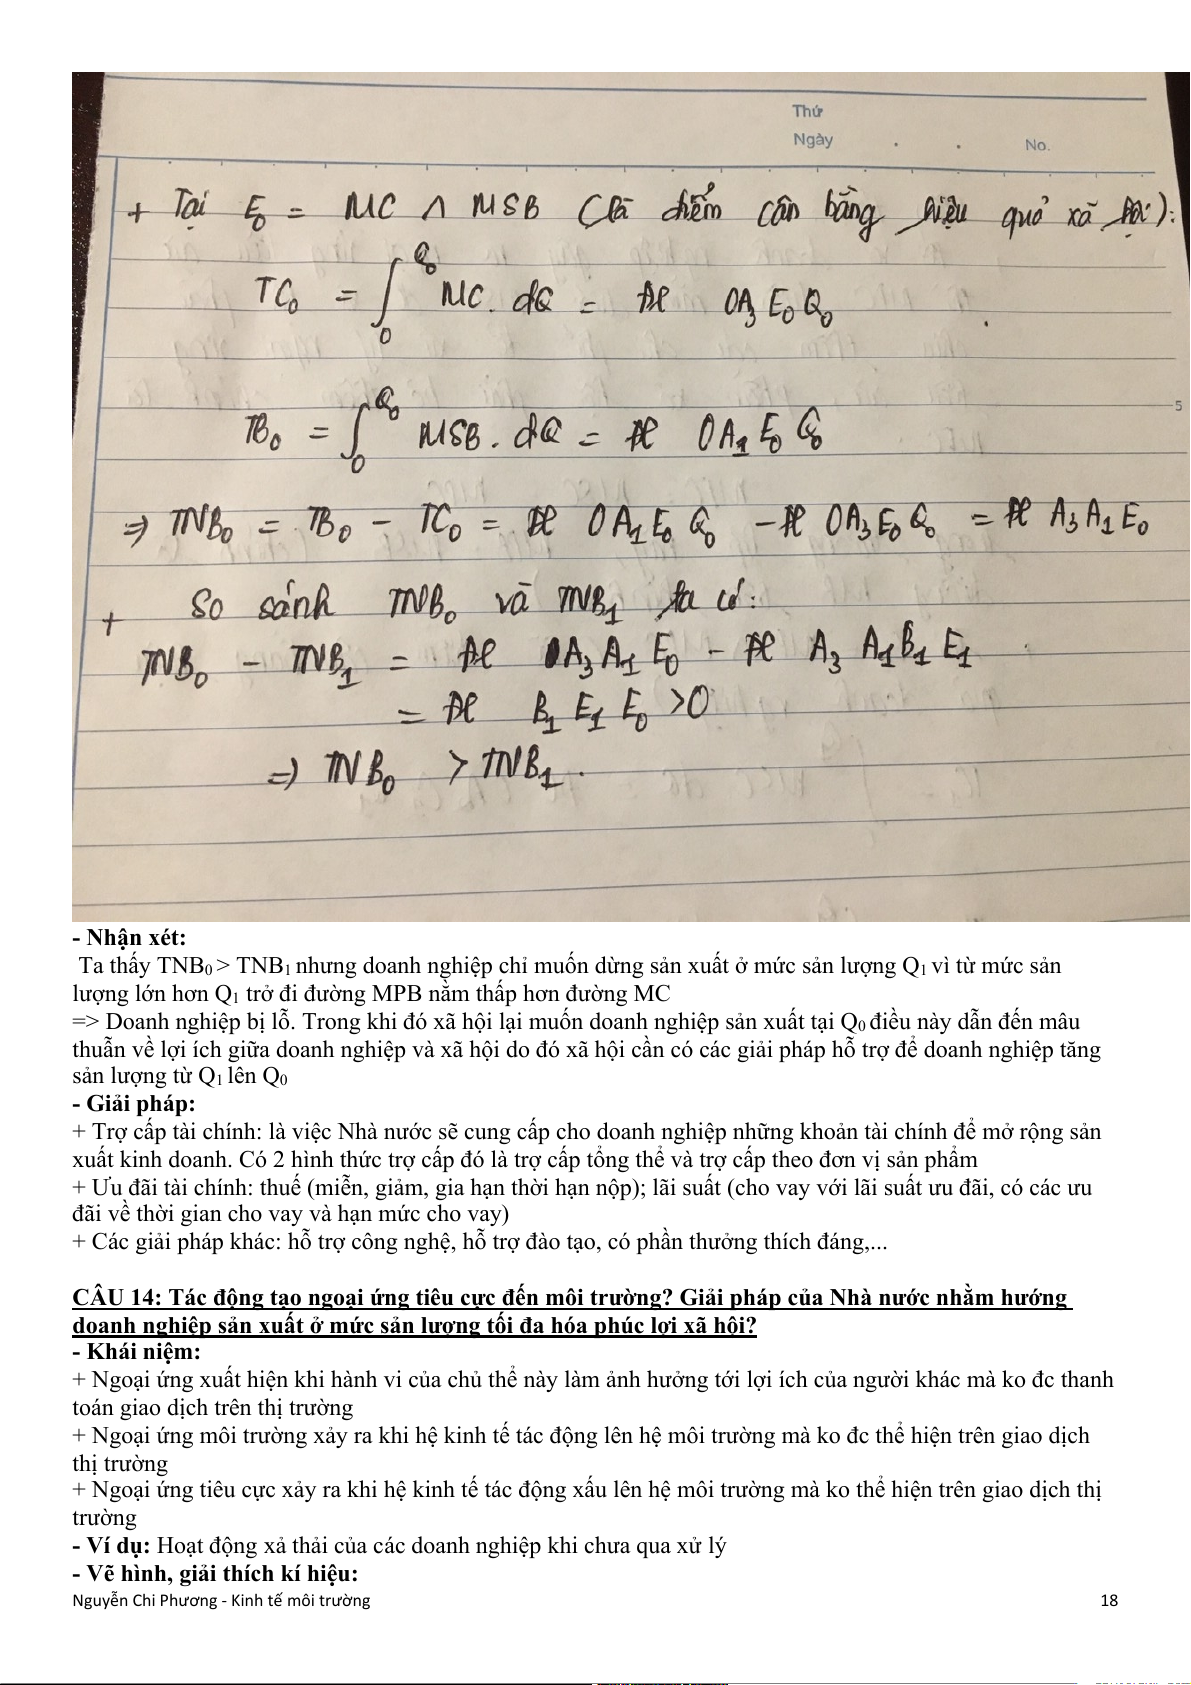 Thứ
Ngày . . No.
+ Tại E₀ = MC ∧ MSB (là điểm cân bằng hiệu quả xã hội):
TC₀ = ∫₀^Q₀ MC. dQ = dt OA₃E₀Q₀
5
TB₀ = ∫₀^Q₀ MSB. dQ = dt OA₁E₀Q₀
=> TNB₀ = TB₀ - TC₀ = dt OA₁E₀Q₀ - dt OA₃E₀Q₀ = dt A₃A₁E₀
+ So sánh TNB₀ và TNB₁ ta có:
TNB₀ - TNB₁ = dt A₃A₁E₀ - dt A₃A₁B₁E₁
= dt B₁E₁E₀ >0
=> TNB₀ > TNB₁.
- Nhận xét:
Ta thấy TNB₀ > TNB₁ nhưng doanh nghiệp chỉ muốn dừng sản xuất ở mức sản lượng Q₁ vì từ mức sản
lượng lớn hơn Q₁ trở đi đường MPB nằm thấp hơn đường MC
=> Doanh nghiệp bị lỗ. Trong khi đó xã hội lại muốn doanh nghiệp sản xuất tại Q₀ điều này dẫn đến mâu
thuẫn về lợi ích giữa doanh nghiệp và xã hội do đó xã hội cần có các giải pháp hỗ trợ để doanh nghiệp tăng
sản lượng từ Q₁ lên Q₀
- Giải pháp:
+ Trợ cấp tài chính: là việc Nhà nước sẽ cung cấp cho doanh nghiệp những khoản tài chính để mở rộng sản
xuất kinh doanh. Có 2 hình thức trợ cấp đó là trợ cấp tổng thể và trợ cấp theo đơn vị sản phẩm
+ Ưu đãi tài chính: thuế (miễn, giảm, gia hạn thời hạn nộp); lãi suất (cho vay với lãi suất ưu đãi, có các ưu
đãi về thời gian cho vay và hạn mức cho vay)
+ Các giải pháp khác: hỗ trợ công nghệ, hỗ trợ đào tạo, có phần thưởng thích đáng,...
CÂU 14: Tác động tạo ngoại ứng tiêu cực đến môi trường? Giải pháp của Nhà nước nhằm hướng
doanh nghiệp sản xuất ở mức sản lượng tối đa hóa phúc lợi xã hội?
- Khái niệm:
+ Ngoại ứng xuất hiện khi hành vi của chủ thể này làm ảnh hưởng tới lợi ích của người khác mà ko đc thanh
toán giao dịch trên thị trường
+ Ngoại ứng môi trường xảy ra khi hệ kinh tế tác động lên hệ môi trường mà ko đc thể hiện trên giao dịch
thị trường
+ Ngoại ứng tiêu cực xảy ra khi hệ kinh tế tác động xấu lên hệ môi trường mà ko thể hiện trên giao dịch thị
trường
- Ví dụ: Hoạt động xả thải của các doanh nghiệp khi chưa qua xử lý
- Vẽ hình, giải thích kí hiệu:
Nguyễn Chi Phương - Kinh tế môi trường 18